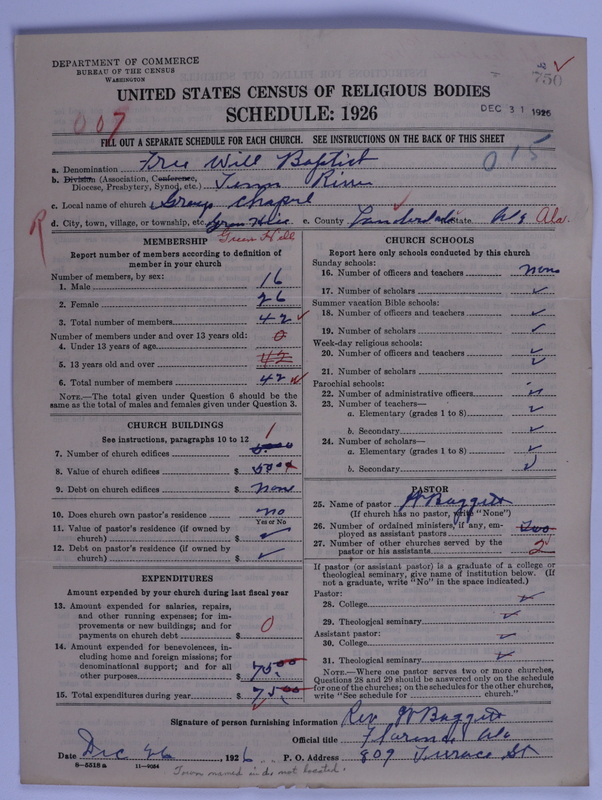 DEPARTMENT OF COMMERCE
BUREAU OF THE CENSUS
WASHINGTON
750
UNITED STATES CENSUS OF RELIGIOUS BODIES
SCHEDULE: 1926
DEC 31 1926
007
FILL OUT A SEPARATE SCHEDULE FOR EACH CHURCH. SEE INSTRUCTIONS ON THE BACK OF THIS SHEET
015
a. Denomination Free Will Baptist
b. Division (Association, Conference, Diocese, Presbytery, Synod, etc.) Tenn River
c. Local name of church Chapel
d. City, town, village, or township, etc. Green Hill e. County Lauderdale State Ala.
R
Green Hill
MEMBERSHIP
Report number of members according to definition of
member in your church
Number of members, by sex:
1. Male 16
2. Female 26
3. Total number of members 42
Number of members under and over 13 years old:
4. Under 13 years of age 0
5. 13 years old and over 42
6. Total number of members 42
NOTE.—The total given under Question 6 should be
same as the total of males and females given under Question 3.
CHURCH BUILDINGS
See instructions, paragraphs 10 to 12
7. Number of church edifices 1
8. Value of church edifices $ 500
9. Debt on church edifices $ None
10. Does church own pastor's residence no
Yes or No
11. Value of pastor's residence (if owned by
church) $
12. Debt on pastor's residence (if owned by
church) $
EXPENDITURES
Amount expended by your church during last fiscal year
13. Amount expended for salaries, repairs,
and other running expenses; for im-
provements or new buildings; and for
payments on church debt $ 0
14. Amount expended for benevolences, in-
cluding home and foreign missions; for
denominational support; and for all
other purposes $ 75.00
15. Total expenditures during year $ 75.00
CHURCH SCHOOLS
Report here only schools conducted by this church
Sunday schools:
16. Number of officers and teachers none
17. Number of scholars
Summer vacation Bible schools:
18. Number of officers and teachers
19. Number of scholars
Week-day religious schools:
20. Number of officers and teachers
21. Number of scholars
Parochial schools:
22. Number of administrative officers
23. Number of teachers—
a. Elementary (grades 1 to 8)
b. Secondary
24. Number of scholars—
a. Elementary (grades 1 to 8)
b. Secondary
PASTOR
25. Name of pastor Baggett
(If church has no pastor, write "None")
26. Number of ordained ministers, if any, em-
ployed as assistant pastors Two
27. Number of other churches served by the
pastor or his assistants 2
If pastor (or assistant pastor) is a graduate of a college or
theological seminary, give name of institution below. (If
not a graduate, write "No" in the space indicated.)
Pastor:
28. College
29. Theological seminary
Assistant pastor:
30. College
31. Theological seminary
NOTE.—Where one pastor serves two or more churches,
Questions 28 and 29 should be answered only on the schedule
for one of the churches; on the schedules for the other churches,
write "See schedule for church."
Signature of person furnishing information Rev Baggett
Official title Florence Ala
Date Dec 26, 1926 P. O. Address 809 Terrace St
8—5518 a 11—9034
Town named in d. not located.